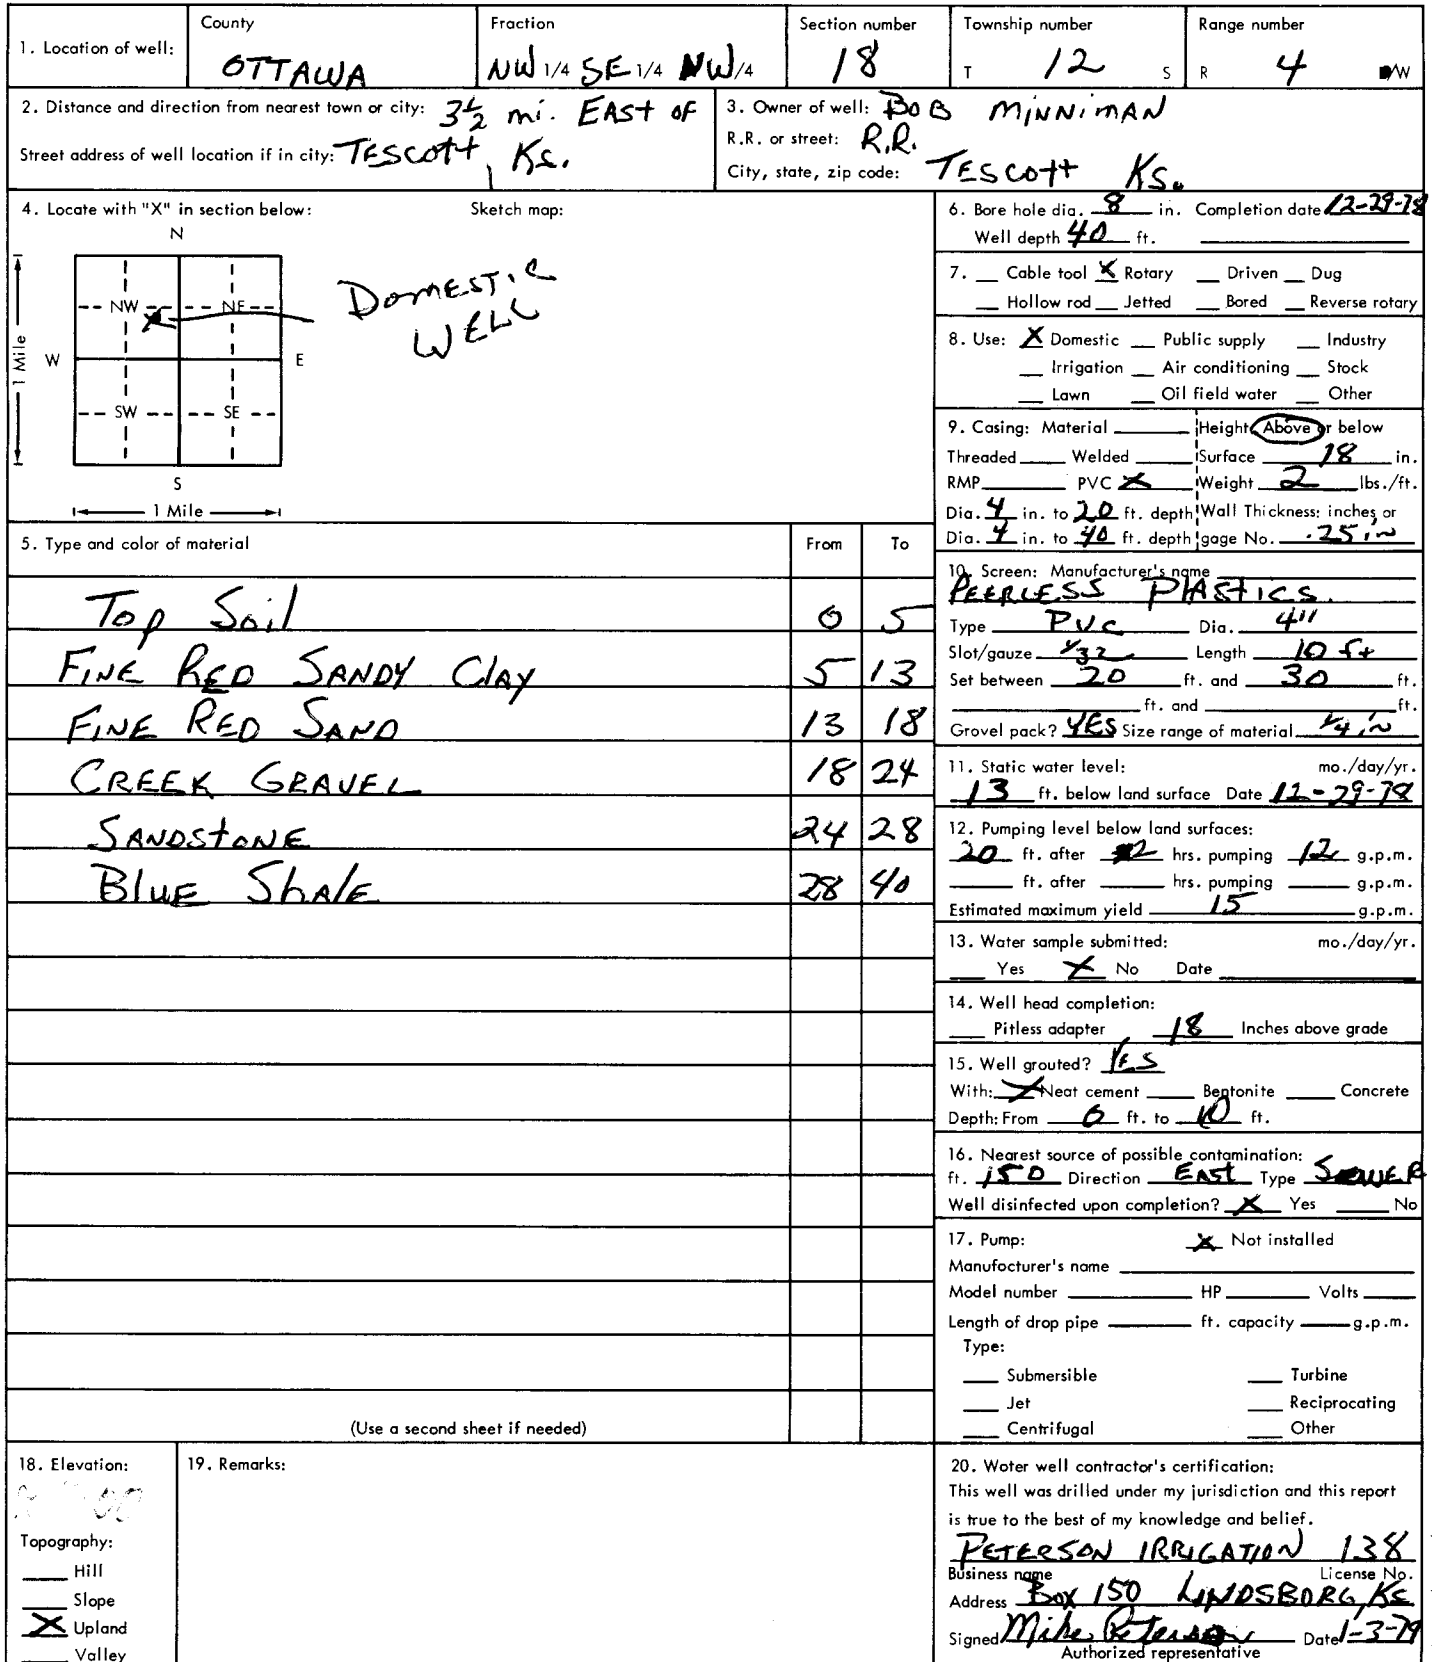 1. Location of well: County OTTAWA Fraction NW 1/4 SE 1/4 NW 1/4 Section number 18 Township number T 12 S Range number R 4 /W
2. Distance and direction from nearest town or city: 3 1/2 mi. EAST of
Street address of well location if in city: TESCOTT, Ks.
3. Owner of well: BOB MINNIMAN
R.R. or street: R.R.
City, state, zip code: TESCOTT Ks.
4. Locate with "X" in section below: Sketch map:
N
NW NE
W E
SW SE
S
1 Mile
1 Mile
DOMESTIC
WELL
5. Type and color of material From To
Top Soil 0 5
FINE RED SANDY CLAY 5 13
FINE RED SAND 13 18
CREEK GRAVEL 18 24
SANDSTONE 24 28
BLUE SHALE 28 40
(Use a second sheet if needed)
6. Bore hole dia. 8 in. Completion date 12-29-78
Well depth 40 ft.
7. __ Cable tool X Rotary __ Driven __ Dug
__ Hollow rod __ Jetted __ Bored __ Reverse rotary
8. Use: X Domestic __ Public supply __ Industry
__ Irrigation __ Air conditioning __ Stock
__ Lawn __ Oil field water __ Other
9. Casing: Material ____ Height: Above or below
Threaded ____ Welded ____ Surface 18 in.
RMP ____ PVC X Weight 2 lbs./ft.
Dia. 4 in. to 20 ft. depth Wall Thickness: inches or
Dia. 4 in. to 40 ft. depth gage No. .25 in
10. Screen: Manufacturer's name
PEERLESS PLASTICS.
Type PVC Dia. 4"
Slot/gauze 1/32 Length 10 ft
Set between 20 ft. and 30 ft.
____ ft. and ____ ft.
Gravel pack? YES Size range of material 1/4 in
11. Static water level: mo./day/yr.
13 ft. below land surface Date 12-29-78
12. Pumping level below land surfaces:
20 ft. after 2 hrs. pumping 12 g.p.m.
____ ft. after ____ hrs. pumping ____ g.p.m.
Estimated maximum yield 15 g.p.m.
13. Water sample submitted: mo./day/yr.
__ Yes X No Date ____
14. Well head completion:
__ Pitless adapter 18 Inches above grade
15. Well grouted? YES
With: X Neat cement ____ Bentonite ____ Concrete
Depth: From 0 ft. to 10 ft.
16. Nearest source of possible contamination:
ft. 150 Direction EAST Type SEWER
Well disinfected upon completion? X Yes ____ No
17. Pump: X Not installed
Manufacturer's name ____
Model number ____ HP ____ Volts ____
Length of drop pipe ____ ft. capacity ____ g.p.m.
Type:
__ Submersible __ Turbine
__ Jet __ Reciprocating
__ Centrifugal __ Other
18. Elevation:
Topography:
__ Hill
__ Slope
X Upland
__ Valley
19. Remarks:
20. Water well contractor's certification:
This well was drilled under my jurisdiction and this report
is true to the best of my knowledge and belief.
PETERSON IRRIGATION 138
Business name License No.
Address Box 150 LINDSBORG, Ks
Signed Mike Peterson Date 1-3-79
Authorized representative